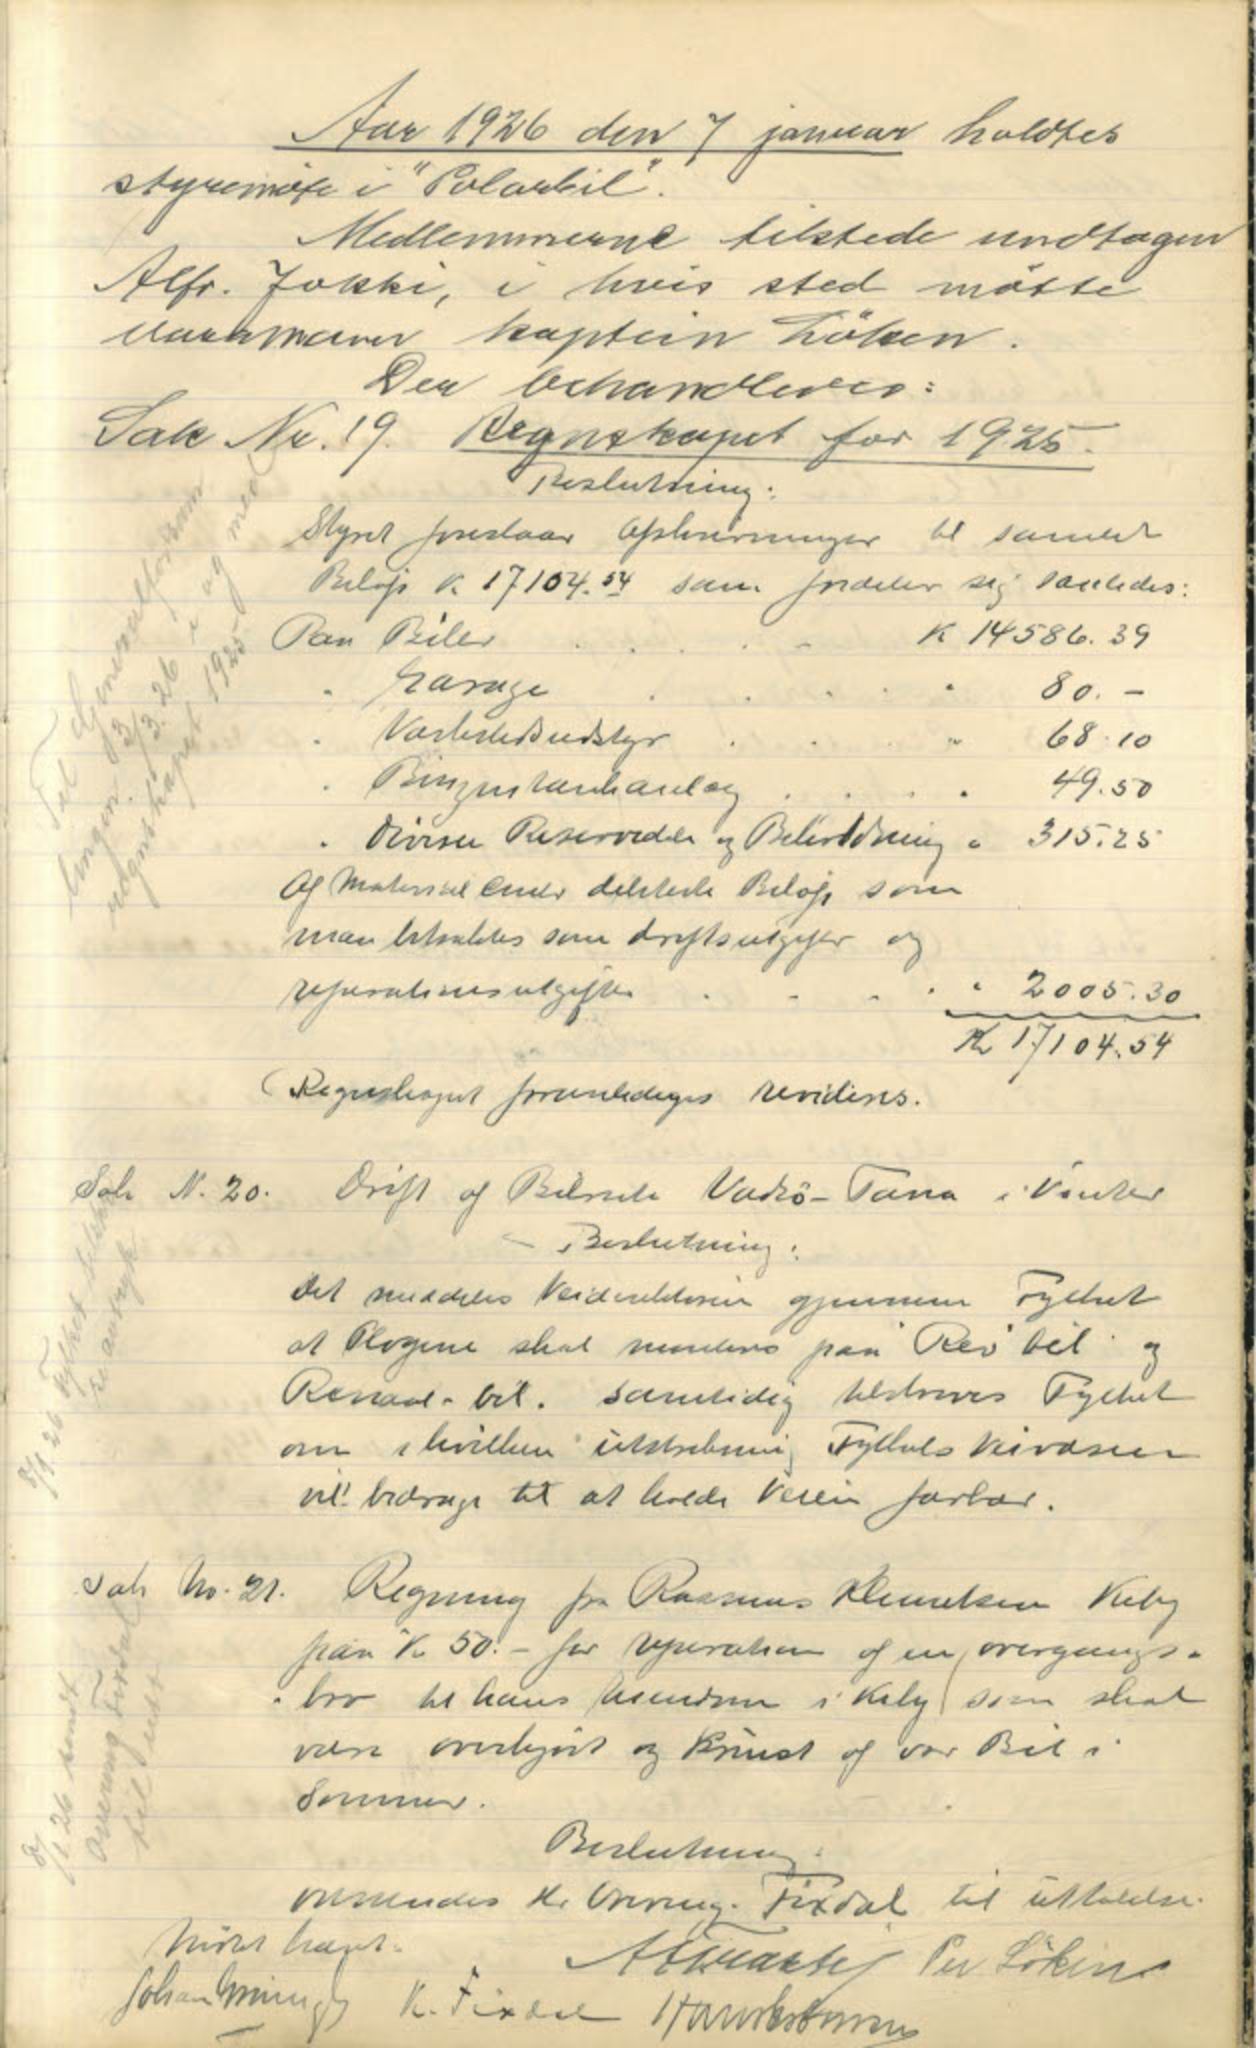 Aar 1926 den 7 januar holdtes
styremøte i "Polarbil".
Medlemmerne tilstede undtagen
Alfr. Jokki, i hvis sted møtte
varamann kaptein Löken.
Der behandledes:
Sak Nr. 19. Regnskapet for 1925.
Beslutning:
Styret foreslaar Afskrivninger til samlet
Beløp K. 17104.54 som fordeler sig saaledes:
Paa Biler K 14586.39
" Garage " 80.-
" Verkstedsudstyr " 68.10
" Benzintankanlæg " 49.50
" Diverse Reservedele og 315.25
Af Materiel
man som driftsutgifter og
reparationsutgifter " 2005.30
Kr 17104.54
Regnskapet revideres.
Sak N. 20. Drift af Bilrute Vadsö-Tana i Vinter
Beslutning:
Det meddeles Veidirektøren gjennem Fylket
at Plogene skal monteres paa Reo bil og
Renault-bil. Samtidig tilskrives Fylket
om i hvilken utstrekning Fylkets Veivæsen
vil bidrage til at holde Veien farbar.
Sak No. 21. Regning fra Rasmus Kiby
paa K 50.- for reparation af en overgangs-
bro til hans i Kiby som skal
være overkjørt og af vor Bil i
Sommer.
Beslutning:
oversendes Hr. Fixdal til uttalelse.
Møtet hævet.
Per Löken
Johan K. Fixdal
Til Generalforsam
lingen 3/3. 26 i og med
regnskapet 1925
8/1 26 Fylket tilskr.
se avtryk
8/1 26 sendt
Fixdal